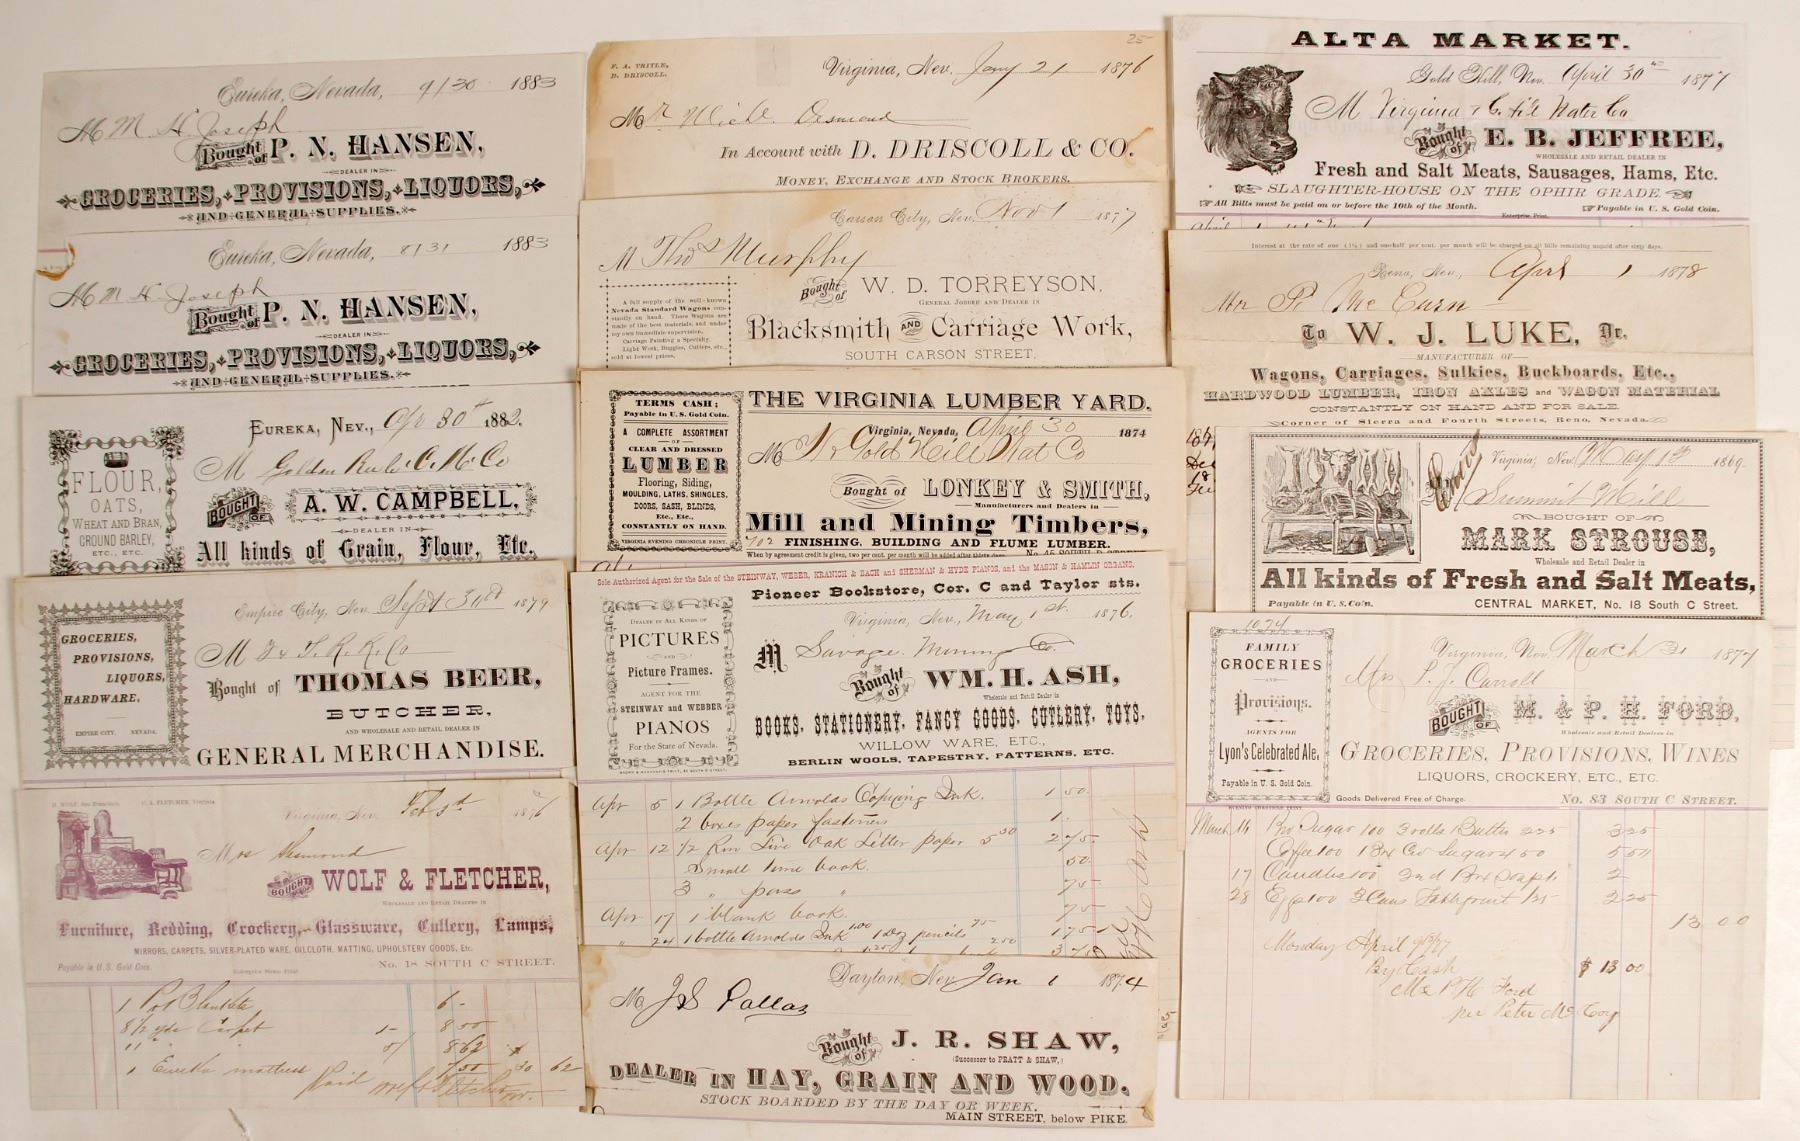 Eureka, Nevada, 9/30 1883
M M. H. Joseph
Bought of P. N. HANSEN,
DEALER IN
GROCERIES, PROVISIONS, LIQUORS,
AND GENERAL SUPPLIES.
Eureka, Nevada, 8/31 1883
M M. H. Joseph
Bought of P. N. HANSEN,
DEALER IN
GROCERIES, PROVISIONS, LIQUORS,
AND GENERAL SUPPLIES.
FLOUR,
OATS,
WHEAT AND BRAN,
GROUND BARLEY,
ETC., ETC.
EUREKA, NEV., Apr 30th 1882.
M Golden Rule C. M. Co
BOUGHT OF A. W. CAMPBELL,
DEALER IN
All kinds of Grain, Flour, Etc.
GROCERIES,
PROVISIONS,
LIQUORS,
HARDWARE.
EMPIRE CITY, NEVADA.
Empire City, Nev. Sept 31st 1879
M V & T. R. R. Co
Bought of THOMAS BEER,
BUTCHER,
AND WHOLESALE AND RETAIL DEALER IN
GENERAL MERCHANDISE.
D. WOLF, San Francisco. C. A. FLETCHER, Virginia
Virginia, Nev. Feb 5th 1876
Mrs Desmond
BOUGHT OF WOLF & FLETCHER,
WHOLESALE AND RETAIL DEALERS IN
Furniture, Bedding, Crockery, Glassware, Cutlery, Lamps,
MIRRORS, CARPETS, SILVER-PLATED WARE, OILCLOTH, MATTING, UPHOLSTERY GOODS, Etc.
Payable in U. S. Gold Coin. Enterprise Steam Print No. 18 SOUTH C STREET.
1 Blankets 6 -
8 1/2 yds Carpet 1- 8 50
11 " " 8 62
1 Eureka mattress 7 50 30 62
Paid Wolf & Fletcher
25
F. A. TRITLE,
D. DRISCOLL.
Virginia, Nev. Jany 21 1876
Mr Michl Desmond
In Account with D. DRISCOLL & CO.
MONEY, EXCHANGE AND STOCK BROKERS.
Carson City, Nev. Nov 1 1877
M Thos Murphy
Bought of W. D. TORREYSON,
GENERAL JOBBER AND DEALER IN
Blacksmith AND Carriage Work,
SOUTH CARSON STREET.
A full supply of the well-known
Nevada Standard Wagons constantly on hand. These Wagons are
made of the best materials, and under
my own immediate supervision.
Carriage Painting a Specialty.
Light Work, Buggies, Cutters, etc.,
sold at lowest prices.
TERMS CASH;
Payable in U. S. Gold Coin.
A COMPLETE ASSORTMENT
OF
CLEAR AND DRESSED
LUMBER
Flooring, Siding,
MOULDING, LATHS, SHINGLES,
DOORS, SASH, BLINDS,
Etc., Etc.,
CONSTANTLY ON HAND.
VIRGINIA EVENING CHRONICLE PRINT.
THE VIRGINIA LUMBER YARD.
Virginia, Nevada, April 30 1874
M V & Gold Hill Wat Co
Bought of LONKEY & SMITH,
Manufacturers and Dealers in
Mill and Mining Timbers,
702 FINISHING, BUILDING AND FLUME LUMBER.
When by agreement credit is given, two per cent. per month will be added after thirty days.
Sole Authorized Agent for the Sale of the STEINWAY, WEBER, KRANICH & BACH and SHERMAN & HYDE PIANOS, and the MASON & HAMLIN ORGANS.
DEALER IN ALL KINDS OF
PICTURES
AND
Picture Frames.
AGENT FOR THE
STEINWAY and WEBBER
PIANOS
For the State of Nevada.
Pioneer Bookstore, Cor. C and Taylor sts.
Virginia, Nev., May 1st 1876.
M Savage Mining Co.
Bought of WM. H. ASH,
Wholesale and Retail Dealer in
BOOKS, STATIONERY, FANCY GOODS, CUTLERY, TOYS,
WILLOW WARE, ETC.,
BERLIN WOOLS, TAPESTRY, PATTERNS, ETC.
Apr 5 1 Bottle Arnolds Copying Ink. 1.50
2 boxes paper fasteners 1.
Apr 12 1/2 Rm Live Oak Letter paper 5 50 2 75
Small time book. 50
3 " pass " 75
Apr 17 1 blank book. 75
" 24 1 bottle Arnolds Ink 1.00 1 Doz pencils 75 1 75
Dayton, Nev. Jan 1 1874
M J S Dallas
Bought of J. R. SHAW,
(Successor to PRATT & SHAW,)
DEALER IN HAY, GRAIN AND WOOD.
STOCK BOARDED BY THE DAY OR WEEK.
MAIN STREET, below PIKE.
ALTA MARKET.
Gold Hill, Nev. April 30th 1877
M Virginia & G. Hill Water Co
Bought of E. B. JEFFREE,
WHOLESALE AND RETAIL DEALER IN
Fresh and Salt Meats, Sausages, Hams, Etc.
SLAUGHTER-HOUSE ON THE OPHIR GRADE.
All Bills must be paid on or before the 10th of the Month. Enterprise Print. Payable in U. S. Gold Coin.
Interest at the rate of one (1½) and one-half per cent. per month will be charged on all bills remaining unpaid after sixty days.
Reno, Nev., April 1 1878
Mr P. McCarn
To W. J. LUKE, Dr.
MANUFACTURER OF
Wagons, Carriages, Sulkies, Buckboards, Etc.,
HARDWOOD LUMBER, IRON AXLES and WAGON MATERIAL
CONSTANTLY ON HAND AND FOR SALE.
Corner of Sierra and Fourth Streets, Reno, Nevada.
Virginia, Nev. May 1st 1869.
Summit Mill
BOUGHT OF
MARK STROUSE,
Wholesale and Retail Dealer in
All kinds of Fresh and Salt Meats,
Payable in U. S. Coin. CENTRAL MARKET, No. 18 South C Street.
1074
FAMILY
GROCERIES
AND
Provisions.
AGENTS FOR
Lyon's Celebrated Ale,
Payable in U. S. Gold Coin.
Virginia, Nev. March 31 1877
Mrs P. J. Carroll
BOUGHT OF M. & P. H. FORD,
Wholesale and Retail Dealers in
GROCERIES, PROVISIONS, WINES
LIQUORS, CROCKERY, ETC., ETC.
Goods Delivered Free of Charge. No. 83 SOUTH C STREET.
March Sugar 100 3 rolls Butter 225 3 25
Coffee 100 1 Bx Sugar 450 5 50
17 Candles 100 Soap 1. 2
28 Eggs 100 3 Cans 125 2 25
13 00
Monday April 9th/77
By Cash $13 00
M & P H Ford
per Peter McCoy